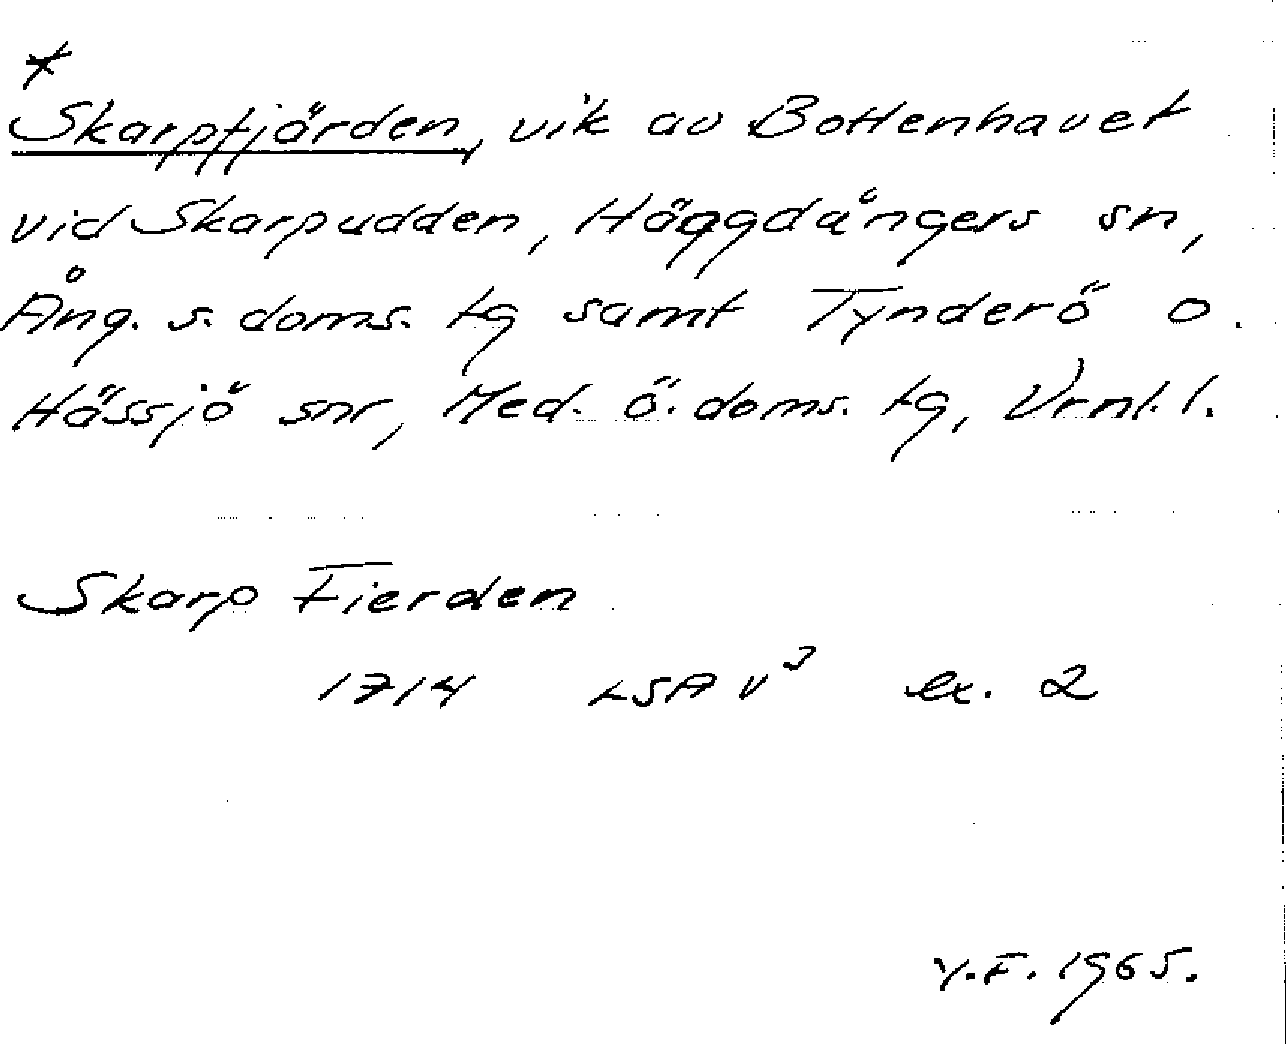 *
Skarpfjärden, vik av Bottenhavet
vid Skarpudden, Häggdångers sn,
Ång. s. doms. tg samt Tynderö o.
Hässjö snr, Med. ö. doms. tg, Vrnl. l.
Skarp Fierden
1714 LSA V³ ex. 2
Y.F. 1965.